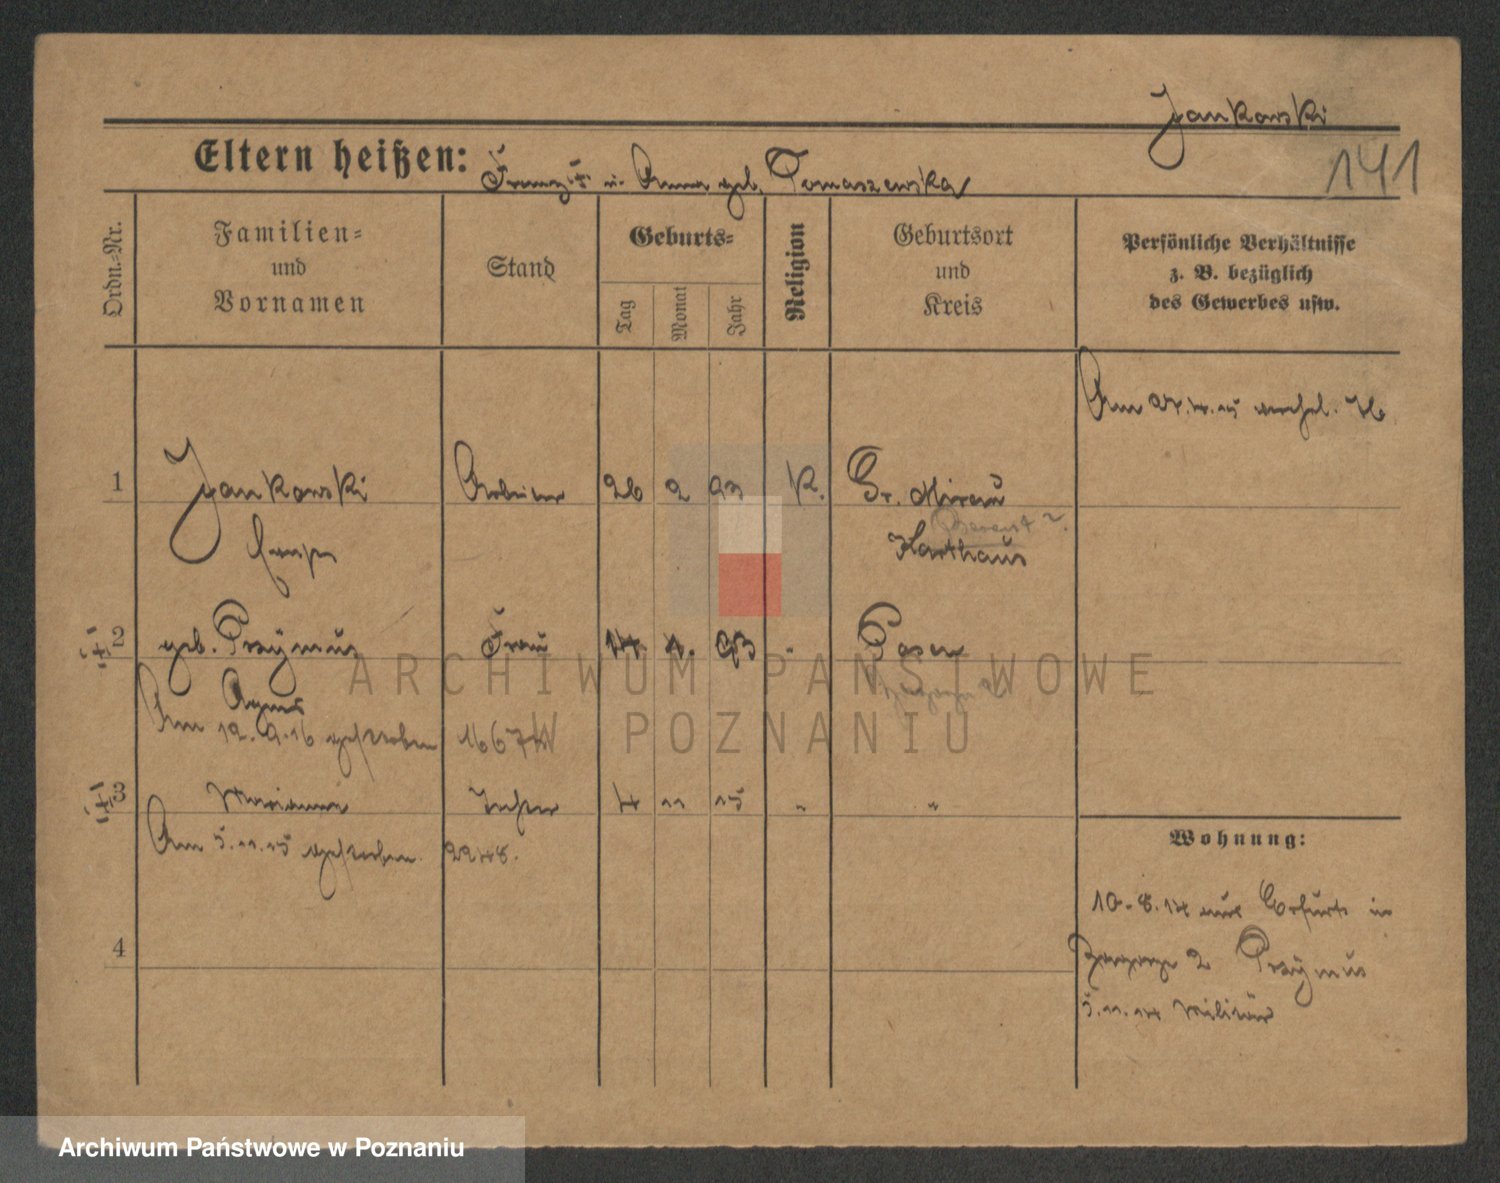 Jankowski
141
Eltern heißen: Franz u. Anna geb. Tomaszewska
Ordn.-Nr.
Familien-
und
Vornamen
Stand
Geburts-
Tag
Monat
Jahr
Religion
Geburtsort
und
Kreis
Persönliche Verhältnisse
z. B. bezüglich
des Gewerbes usw.
Am
1 Jankowski Arbeiter 26 2 93 K. Gr. Mirau
Berent?
Karthaus
2 geb. Przymus Frau 14. 1. 93 " Posen
Agnes
Am 12.9.16 gestorben 1667
3 Marianna Tochter 4 11 15 " "
Am 5.11.15 gestorben. 2248.
4
Wohnung:
10.8.14 aus Erfurt in
2 Przymus
5.11.14 Militär
ARCHIWUM PAŃSTWOWE
W POZNANIU
Archiwum Państwowe w Poznaniu